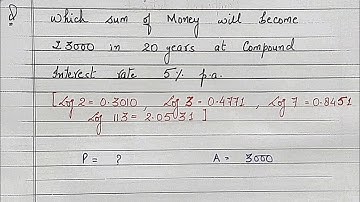 Q
Which sum of Money will become
₹ 3000 in 20 years at Compound
Interest rate 5% p.a.
[ Log 2 = 0.3010, Log 3 = 0.4771, Log 7 = 0.8451
Log 113 = 2.0531 ]
P = ? A = 3000